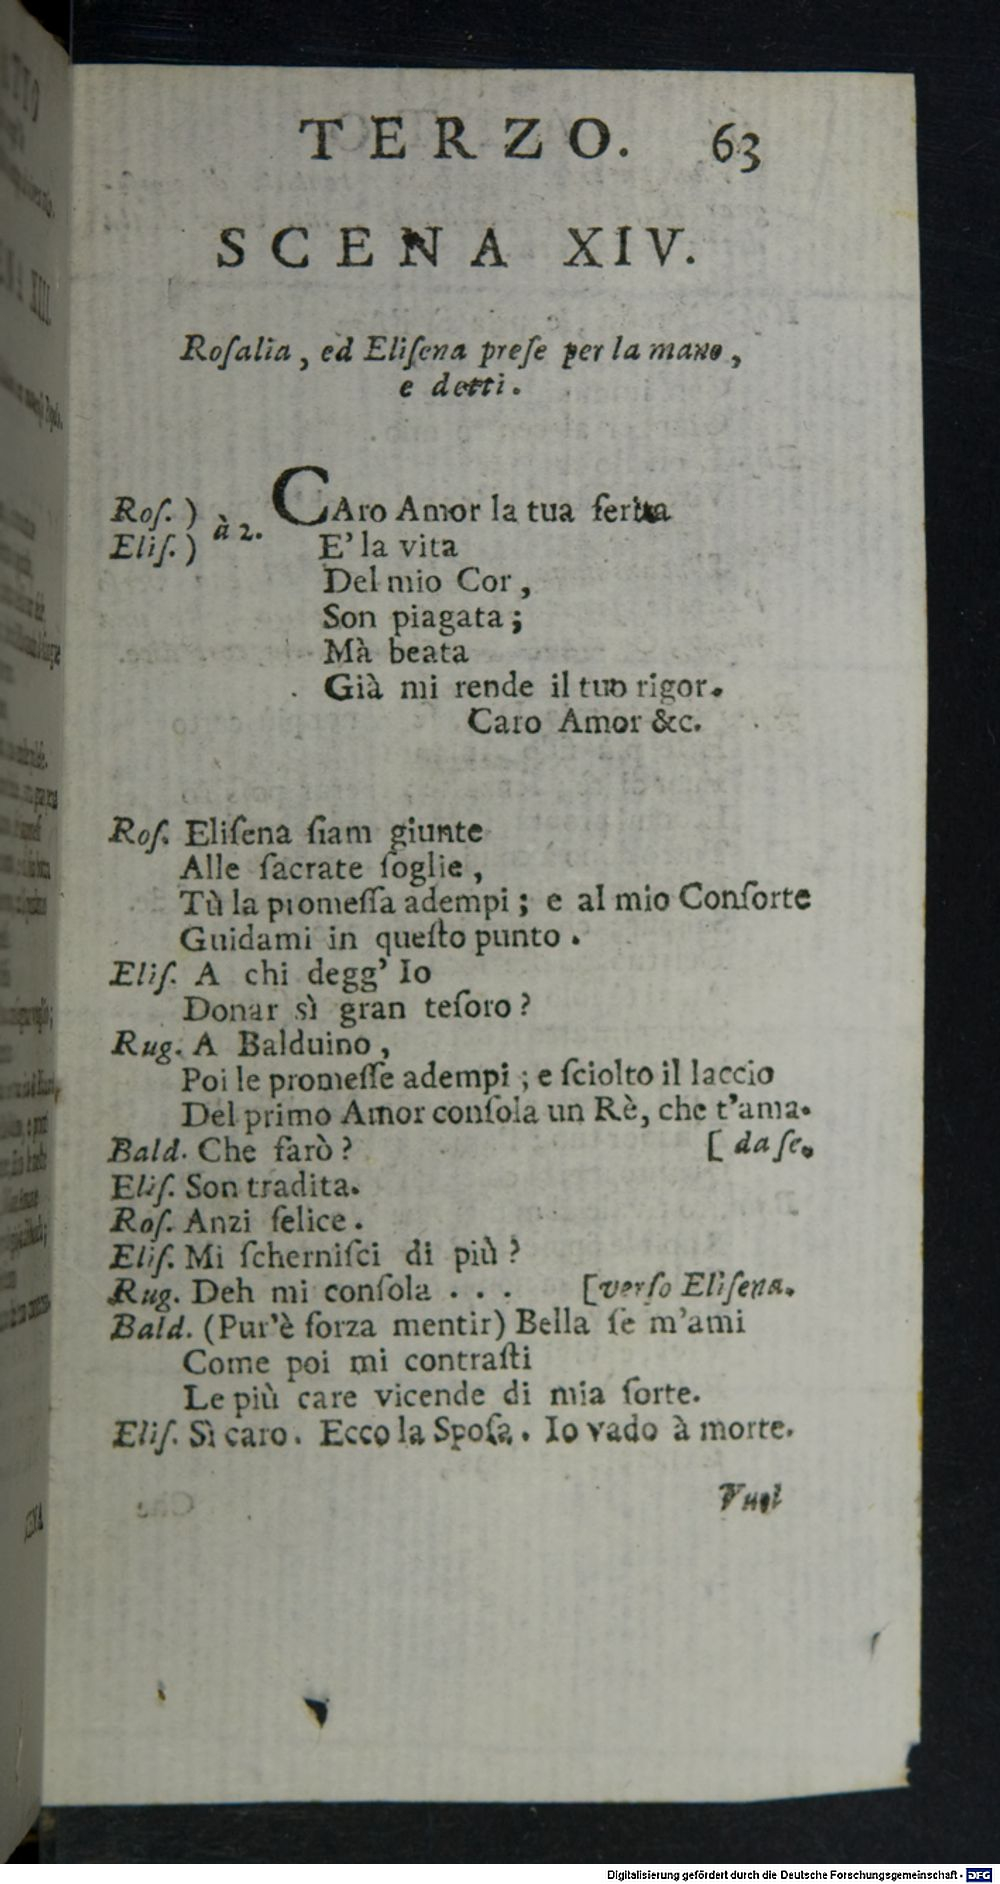 TERZO. 63
SCENA XIV.
Roſalia, ed Eliſena preſe per la mano,
e detti.
Roſ. ) à 2. CAro Amor la tua ferita
Eliſ. ) E' la vita
Del mio Cor,
Son piagata;
Mà beata
Già mi rende il tuo rigor.
Caro Amor &c.
Roſ. Eliſena ſiam giunte
Alle ſacrate ſoglie,
Tù la promeſſa adempi; e al mio Conſorte
Guidami in queſto punto.
Eliſ. A chi degg' Io
Donar sì gran teſoro?
Rug. A Balduino,
Poi le promeſſe adempi; e ſciolto il laccio
Del primo Amor conſola un Rè, che t'ama.
Bald. Che farò? [da ſe.
Eliſ. Son tradita.
Roſ. Anzi felice.
Eliſ. Mi ſcherniſci di più?
Rug. Deh mi conſola . . . [verſo Eliſena.
Bald. (Pur'è forza mentir) Bella ſe m'ami
Come poi mi contraſti
Le più care vicende di mia ſorte.
Eliſ. Sì caro. Ecco la Spoſa. Io vado à morte.
Vuol
Digitalisierung gefördert durch die Deutsche Forschungsgemeinschaft - DFG